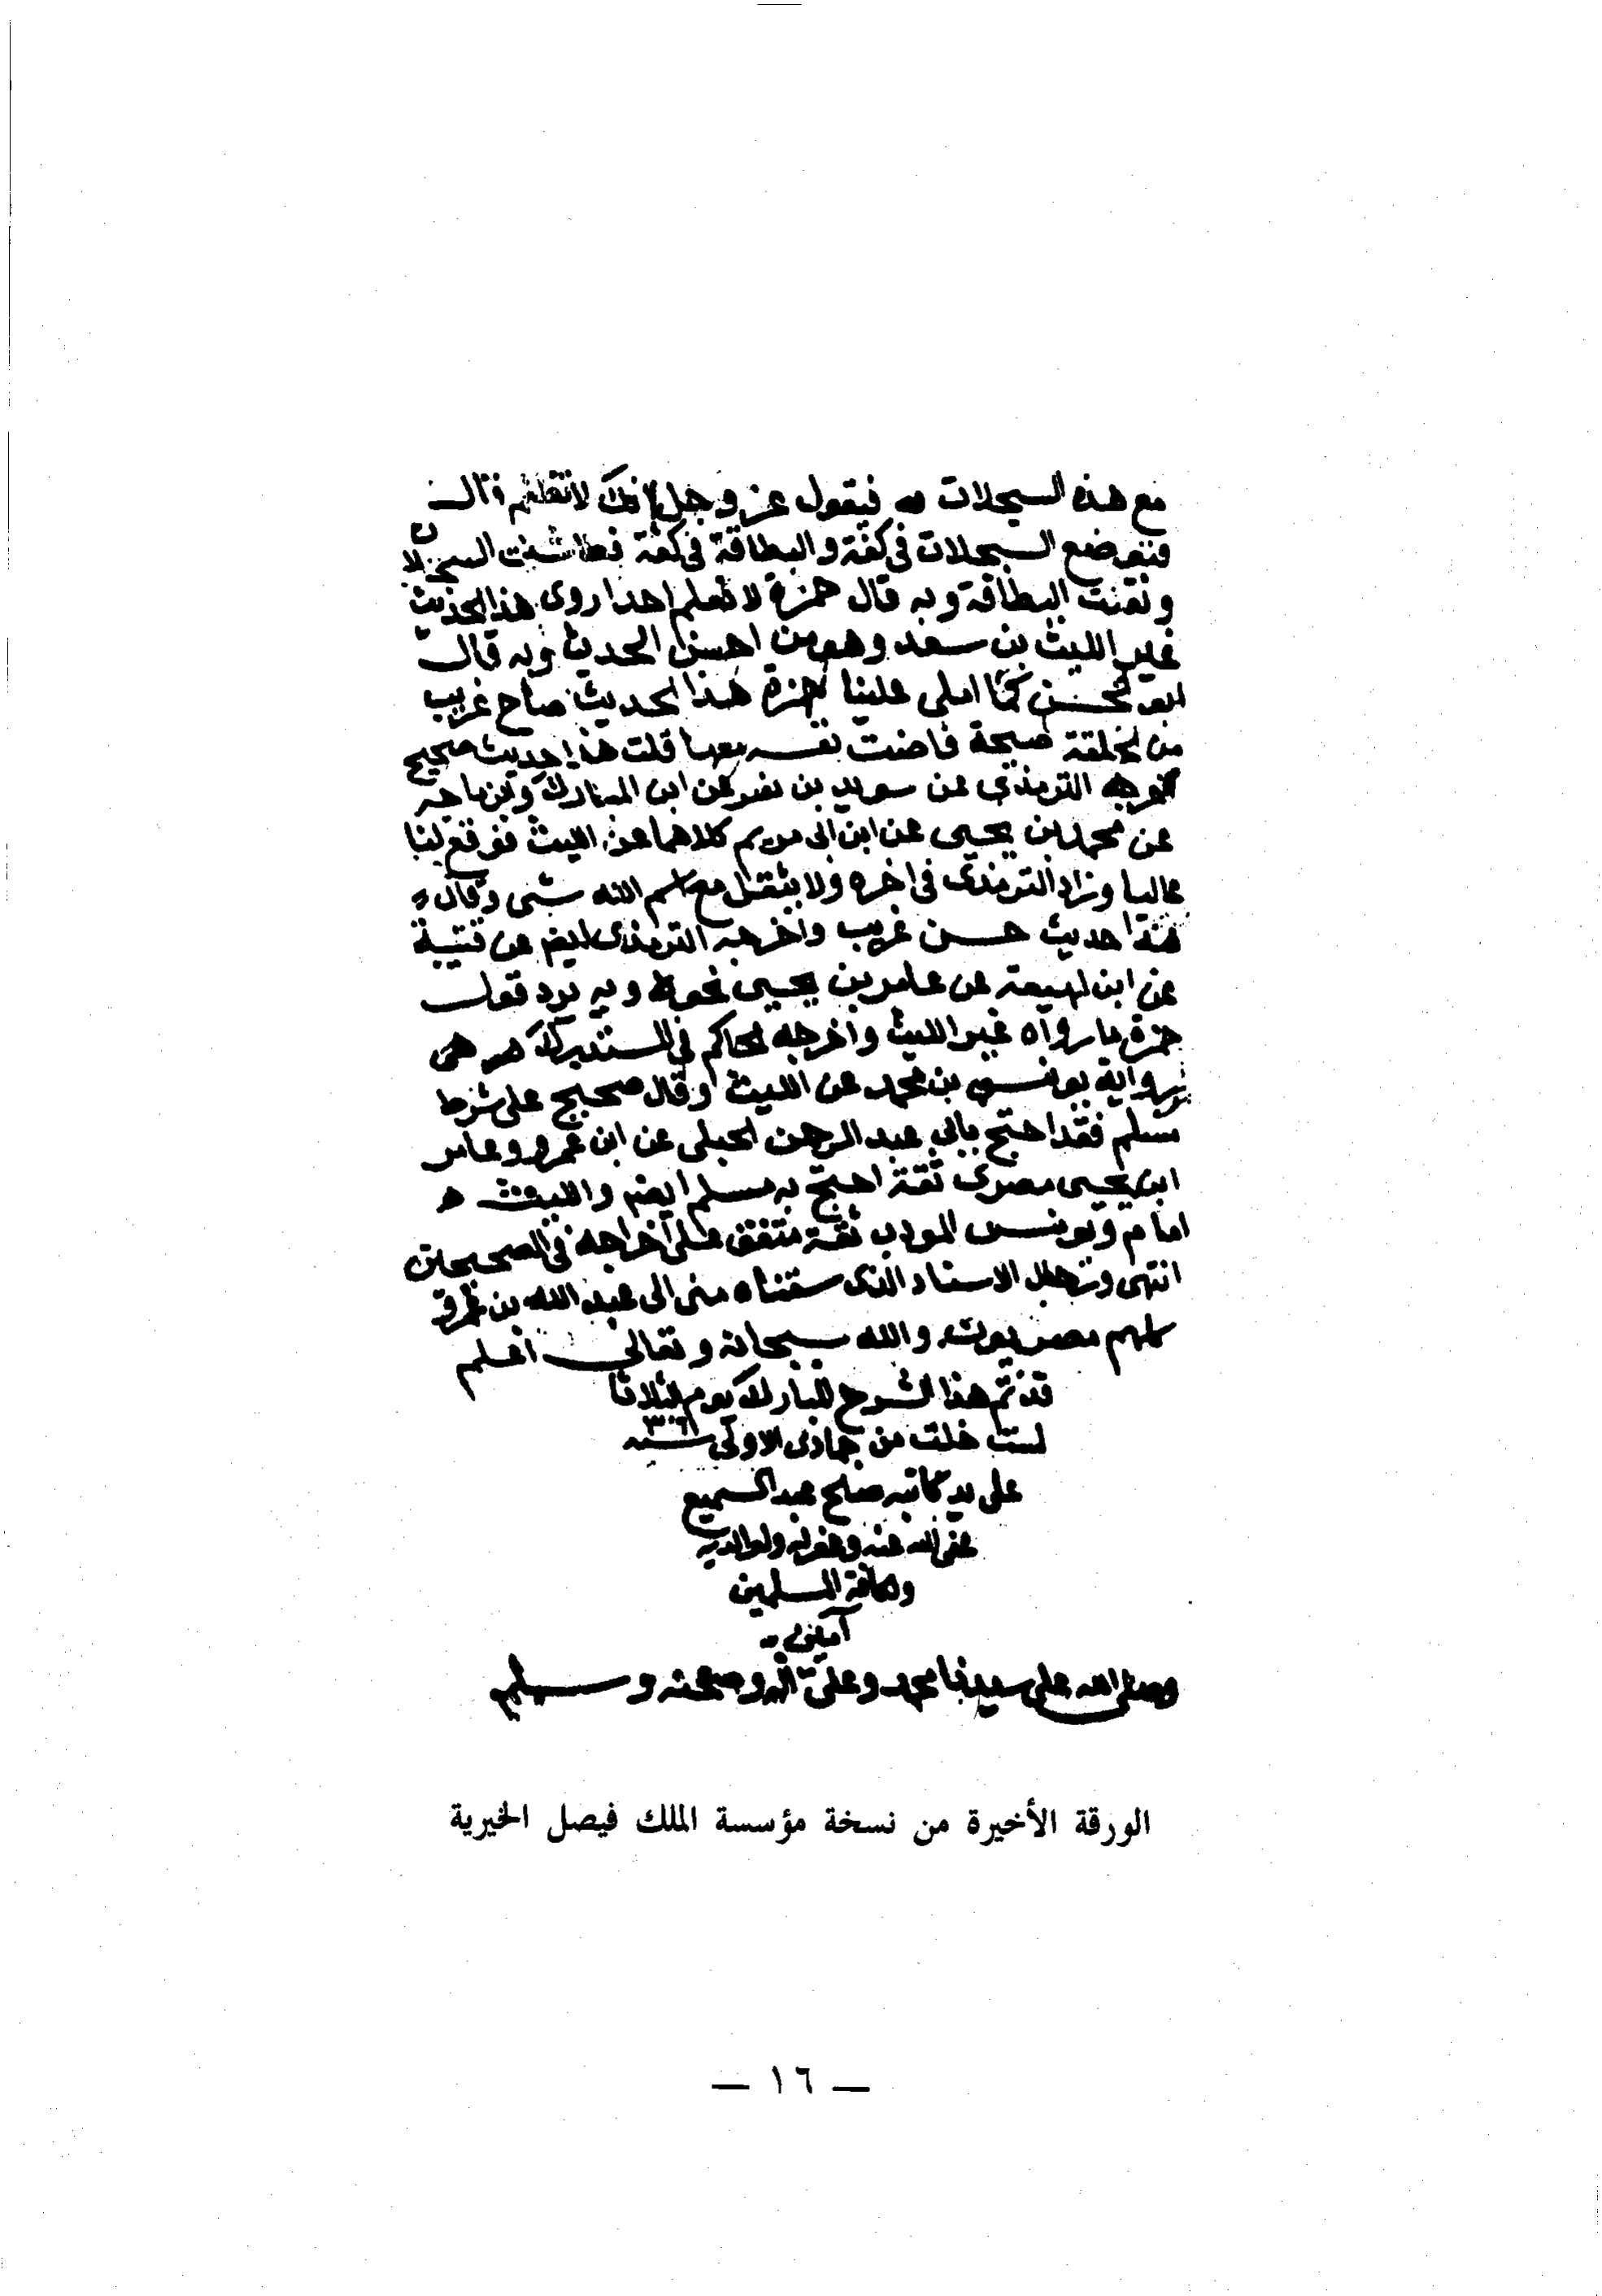 مع هذه السجلات فيقول عز وجل انك لا تظلم قال
فتوضع السجلات فى كفة والبطاقة فى كفة فطاشت السجلات
وثقلت البطاقة وبه قال حمزة لا نعلم احدا روى هذا الحديث
غير الليث بن سعد وهو من احسن الحديث وبه قال
ابو الحسن لما املى علينا حمزة هذا الحديث صاح غريب
من الحلقة صيحة فاضت نفسه معها قلت هذا حديث صحيح
اخرجه الترمذي عن سويد بن نصر عن ابن المبارك وابن ماجه
عن محمد بن يحيى عن ابن ابى مريم كلاهما عن الليث فوقع لنا
عاليا وزاد الترمذى فى اخره ولا يثقل مع اسم الله شئ وقال
هذا حديث حسن غريب واخرجه الترمذى ايضم عن قتيبة
عن ابن لهيعة عن عامر بن يحيى نحوه وبه يرد قول
حمزة ما رواه غير الليث واخرجه الحاكم فى المستدرك من
رواية يونس بن محمد عن الليث وقال صحيح على شرط
مسلم فقد احتج بابي عبد الرحمن الحبلى عن ابن عمرو وعامر
ابن يحيى مصرى ثقة احتج به مسلم ايضم والليث
امام ويونس المودب ثقة متفق على اخراجه فى الصحيحين
انتهى ورجال الاسناد الذى سقناه منى الى عبد الله بن عمرو
كلهم مصريون والله سبحانه وتعالى اعلم
قد تم هذا الشرح المبارك يوم الثلاثا
لست خلت من جمادى الاولى سنة
على يد كاتبه صلح عبد السميع
عفى الله عنه وغفر له ولوالديه
ولكافة المسلمين
آمين
وصلى الله على سيدنا محمد وعلى آله وصحبه وسلم
الورقة الأخيرة من نسخة مؤسسة الملك فيصل الخيرية
— ١٦ —